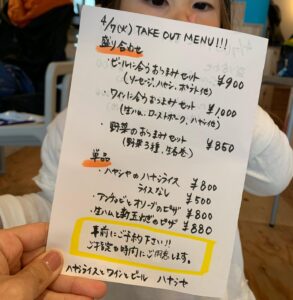 4/7(火) TAKE OUT MENU!!!
盛り合わせ
・ビールに合うおつまみセット ¥900
(ソーセージ、ハヤシ、ポテト他)
・ワインに合うおつまみセット ¥1000
(生ハム、ローストポーク、ハヤシ他)
・野菜のおつまみセット ¥850
(野菜3種、生春巻)
単品
・ハヤシヤのハヤシライス ¥800
ライスなし ¥500
・アンチョビとオリーブのピザ ¥800
・生ハムと新玉ねぎのピザ ¥880
事前にご予約下さい!!
ご指定の時間にご用意します。
ハヤシライスとワインとビール ハヤシヤ